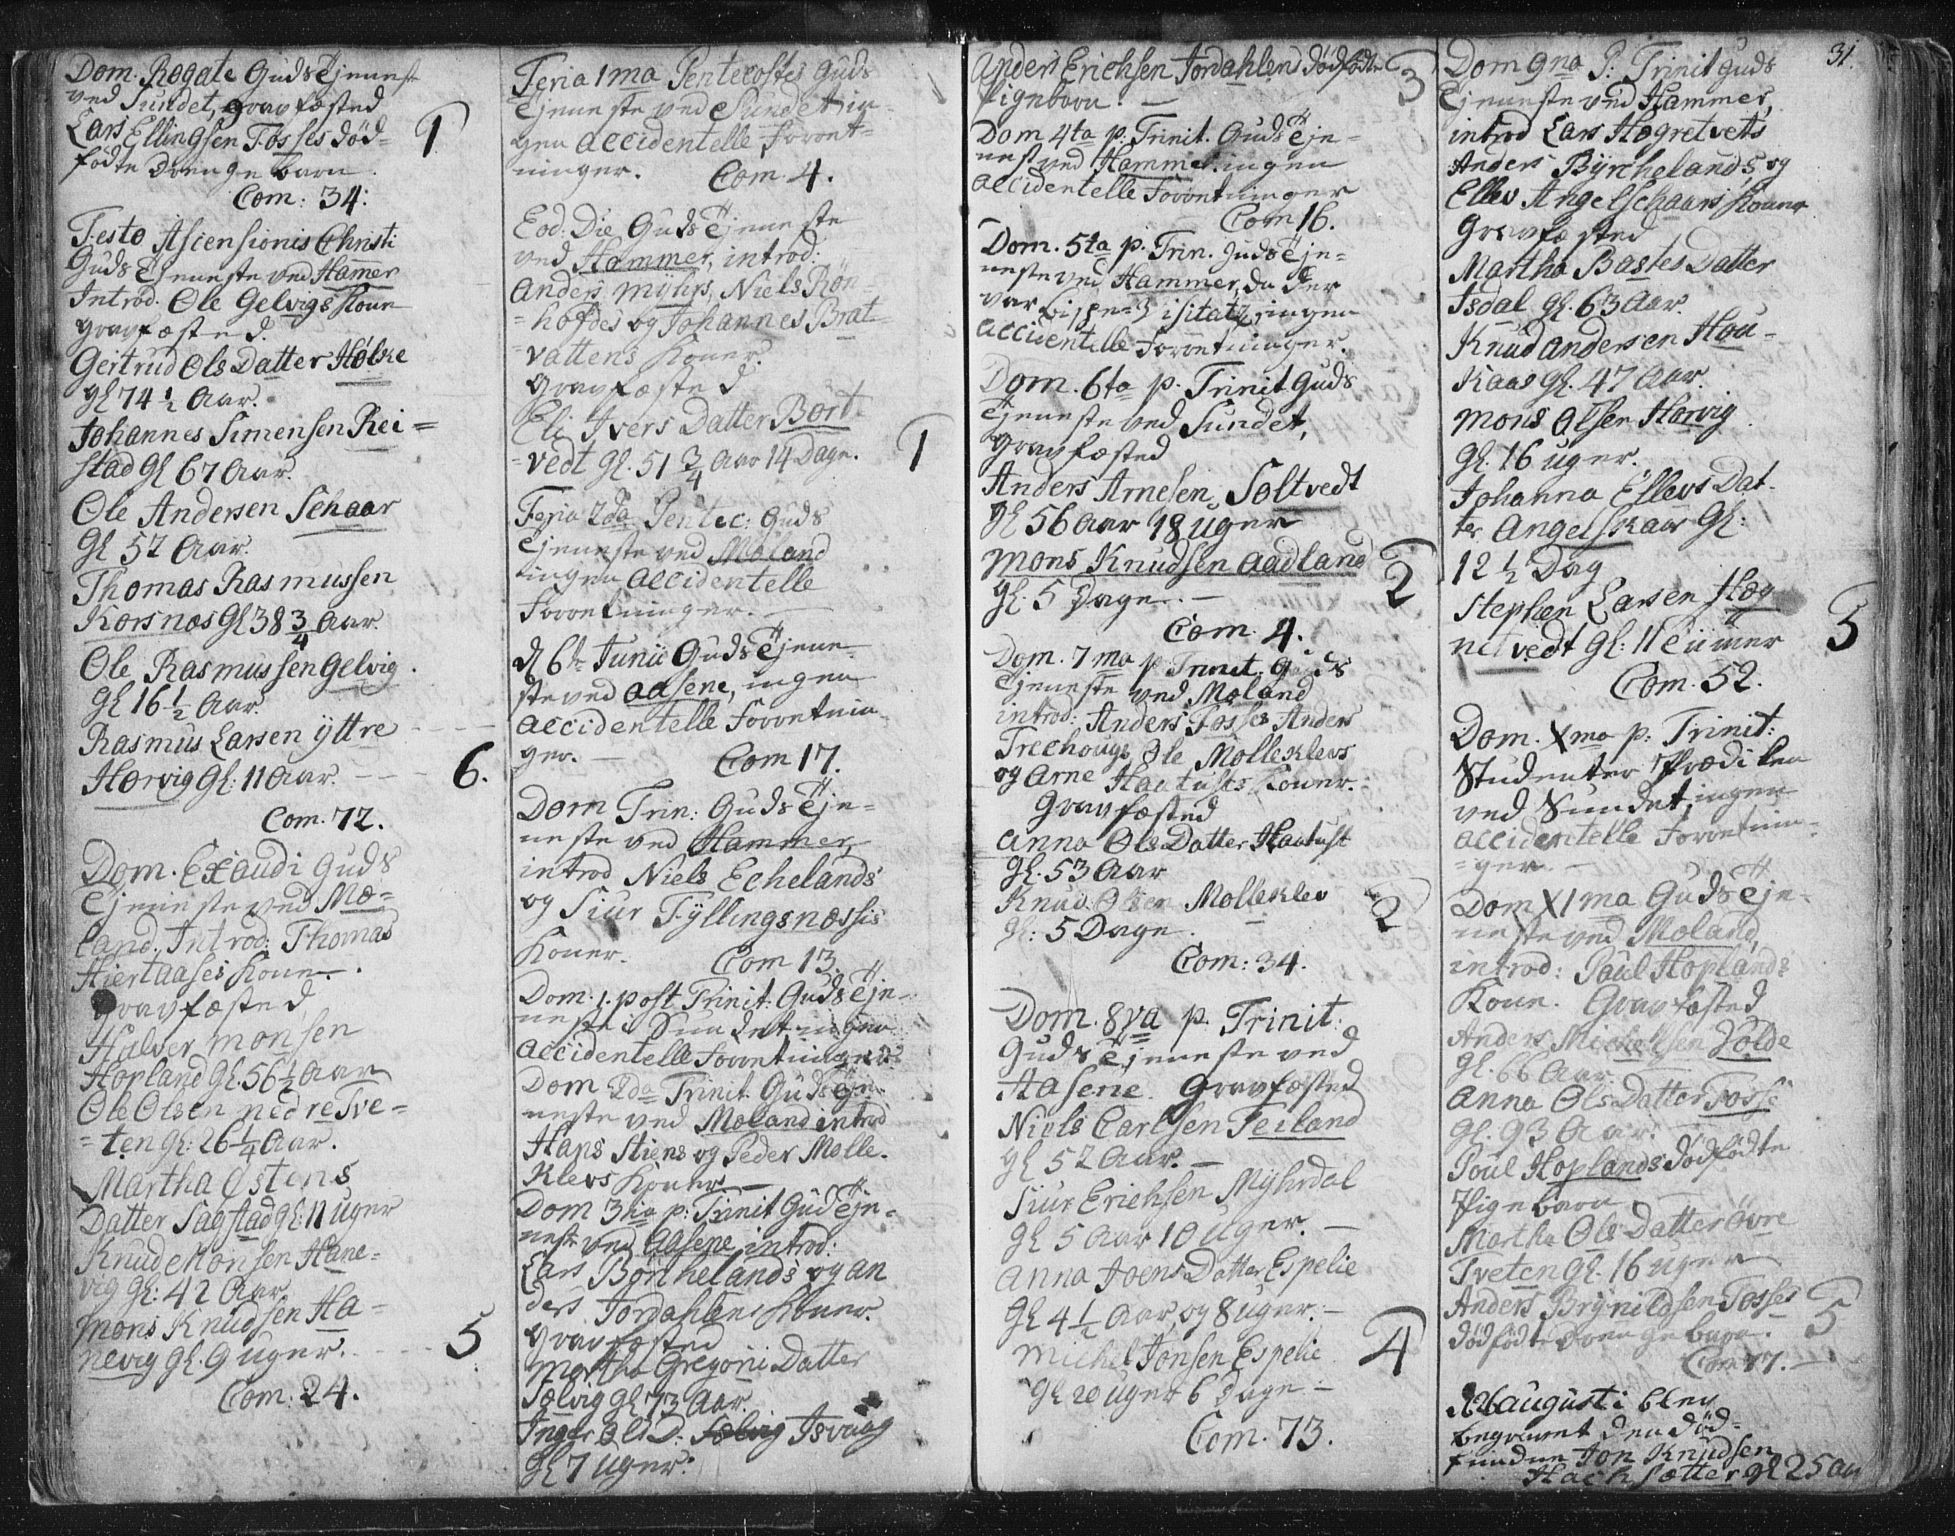 Dom. Rogate Guds Tjeneste
ved Sundet, gravfæsted
Lars Ellingsen Fosses død= 1
fødte Drengebarn.
Com: 34:
Festo Asiensionis Christi
Guds Tjeneste ved Hamer
Introd. Ole Gelvigs Kone
gravfæsted.
Gertrud Ols Datter Holke
gl 74 1/2 Aar.
Johannes Simensen Rei=
stad gl 67 Aar.
Ole Andersen Schaar
gl 52 Aar.
Thomas Rasmussen
Korsnæs gl 38 3/4 Aar.
Ole Rasmussen Gelvig.
gl 16 1/2 Aar.
Rasmus Larsen yttre
Horvig gl. 11 Aar. 6.
Com. 72.
Dom. Exaudi Guds
Tjeneste ved Mo=
land. Introd: Thomas
Hiertaases Kone.
gravfæsted
Halvor Monsen
Hopland gl. 56 1/2 Aar
Ole Olsen nedre Tve=
=ten gl: 26 1/4 Aar.
Martha Ostens
Datter Sagstad gl: 11 Uger
Knud Monsen Hane=
vig gl: 42 Aar.
Mons Knudsen Ha=
nevig gl. 9 uger. 5
Com: 24.
Feria 1ma Pentecostes Guds
Tjeneste ved Sundet, in=
gen accidentelle Forret=
ninger. Com 4.
Eod: Die Guds Tjeneste
ved Hammer, introd:
Anders Myhrs, Niels Rön=
=hofdes og Johannes Brat=
=vattens Koner.
gravfæsted
Eli Ivers Datter Bort=
=vedt gl. 51 3/4 Aar 14 Dage. 1
Feria 2da Pentec: Guds
Tjeneste ved Moland
ingen accidentelle
Forretninger.
D 6te Junii Guds Tjene=
ste ved Aasene, ingen
accidentelle Forretnin=
ger. Com 17.
Dom Trin: Guds Tje=
neste ved Hammer,
introd Niels Echelands
og Siur Fyllingsnæssis
Koner. Com 13.
Dom: 1. post Trinit. Guds Tje=
neste i Sundet ingen
accidentelle Forretninger.
Dom 2da Trinit. Guds Tje=
neste ved Moland introd
Hans Stiens og Peder Molle=
klevs Koner
Dom 3tia p: Trinit Gud Tje=
neste ved Aasene introd:
Lars Börchelands og An
ders Jordahlens Koner.
gravfæsted
Martha Gregorii Datter
Solvig gl 73 Aar.
Inger Ols D: Isvaag
gl 7 Uger.
Anders Erichsen Jordahlens dödfödte 3
Pigebarn.
Dom 4ta p. Trinit. Guds Tje=
neste ved Hammer. ingen
accidentelle Forretninger
Com 16.
Dom. 5ta p. Trin. Guds Tje=
neste ved Hammer, da der
var Bispe=Visitatz, ingen
accidentelle Forretninger.
Dom. 6ta p. Trinit Guds
Tjeneste ved Sundet,
gravfæsted
Anders Arnesen Soltvedt
gl 56 Aar 18 uger
Mons Knudsen Aadland 2
gl. 5 Dage.
Com. 4.
Dom. 7ma p Trinit. Guds
Tjeneste ved Moland
introd: Anders Fosses Anders
Treehougs Ole Molleklevs
og Arne Hautufts Koner.
gravfæsted
Anna Ols Datter Hautuft
gl. 53 Aar
Knud Olsen Molleklev 2
gl: 5 Dage.
Com: 34.
Dom. 8va p. Trinit:
Guds Tjeneste ved
Aasene. gravfæsted
Niels Carlsen Feiland
gl 52 Aar.
Siur Erichsen Myhrdal
gl 5 Aar 10 uger.
Anna Joens Datter Espelie
gl 4 1/2 Aar, og 8 uger.
Michel Jonsen Espelie 4
gl 20 uger 6 Dage
Com. 73.
31.
Dom 9na P: Trinit Guds
Tjeneste ved Hammer,
introd Lars Hogretvets
Anders Byrchelands, og
Ellev Angelschaars Koner
gravfæsted
Martha Bastes Datter
Isdal gl. 63 Aar.
Knud Andersen Hou=
kaas gl. 47 Aar.
Mons Olsen Horvig
gl. 16 uger.
Johanna Ellevs Dat=
ter Angelskaar gl:
12 1/2 Dag
Stephen Larsen Hog
netvedt gl: 11 Uger 5
Com. 52.
Dom. Xma p: Trinit:
Studenter Prædiken
ved Sundet, ingen
accidentelle Forretnin=
=ger.
Dom XIma Guds Tje=
neste ved Moland,
introd: Paul Hoplands
Kone. Gravfæsted
Anders Michelsen Tolde
gl. 66 Aar.
Anna Ols Datter Fosse
gl. 93 Aar.
Poul Hoplands dödfödte
Pigebarn
Martha Ols Datter övre
Tveten gl. 16 uger
Anders Brynildsen Fosses 5
dödfödte Drengebarn.
Com 77.
D 26 Augusti blev
begravet den död=
fundne Jon Knudsen
Hachsætter gl 25 Aar